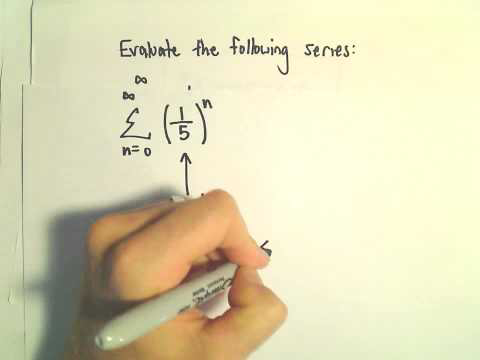 Evaluate the following series:
∞
∞
∑ (1/5)^n
n=0